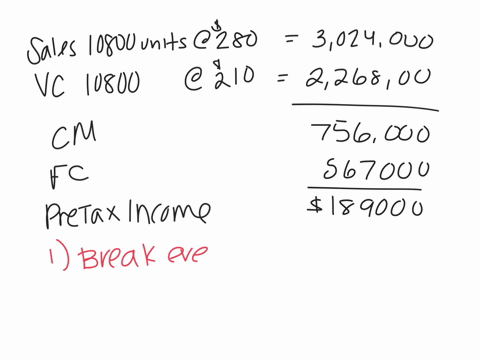 Sales 10800 units @ $280 = 3,024,000
VC 10800 @ $210 = 2,268,00
CM 756,000
FC 567000
PreTax Income $189000
1) Break eve